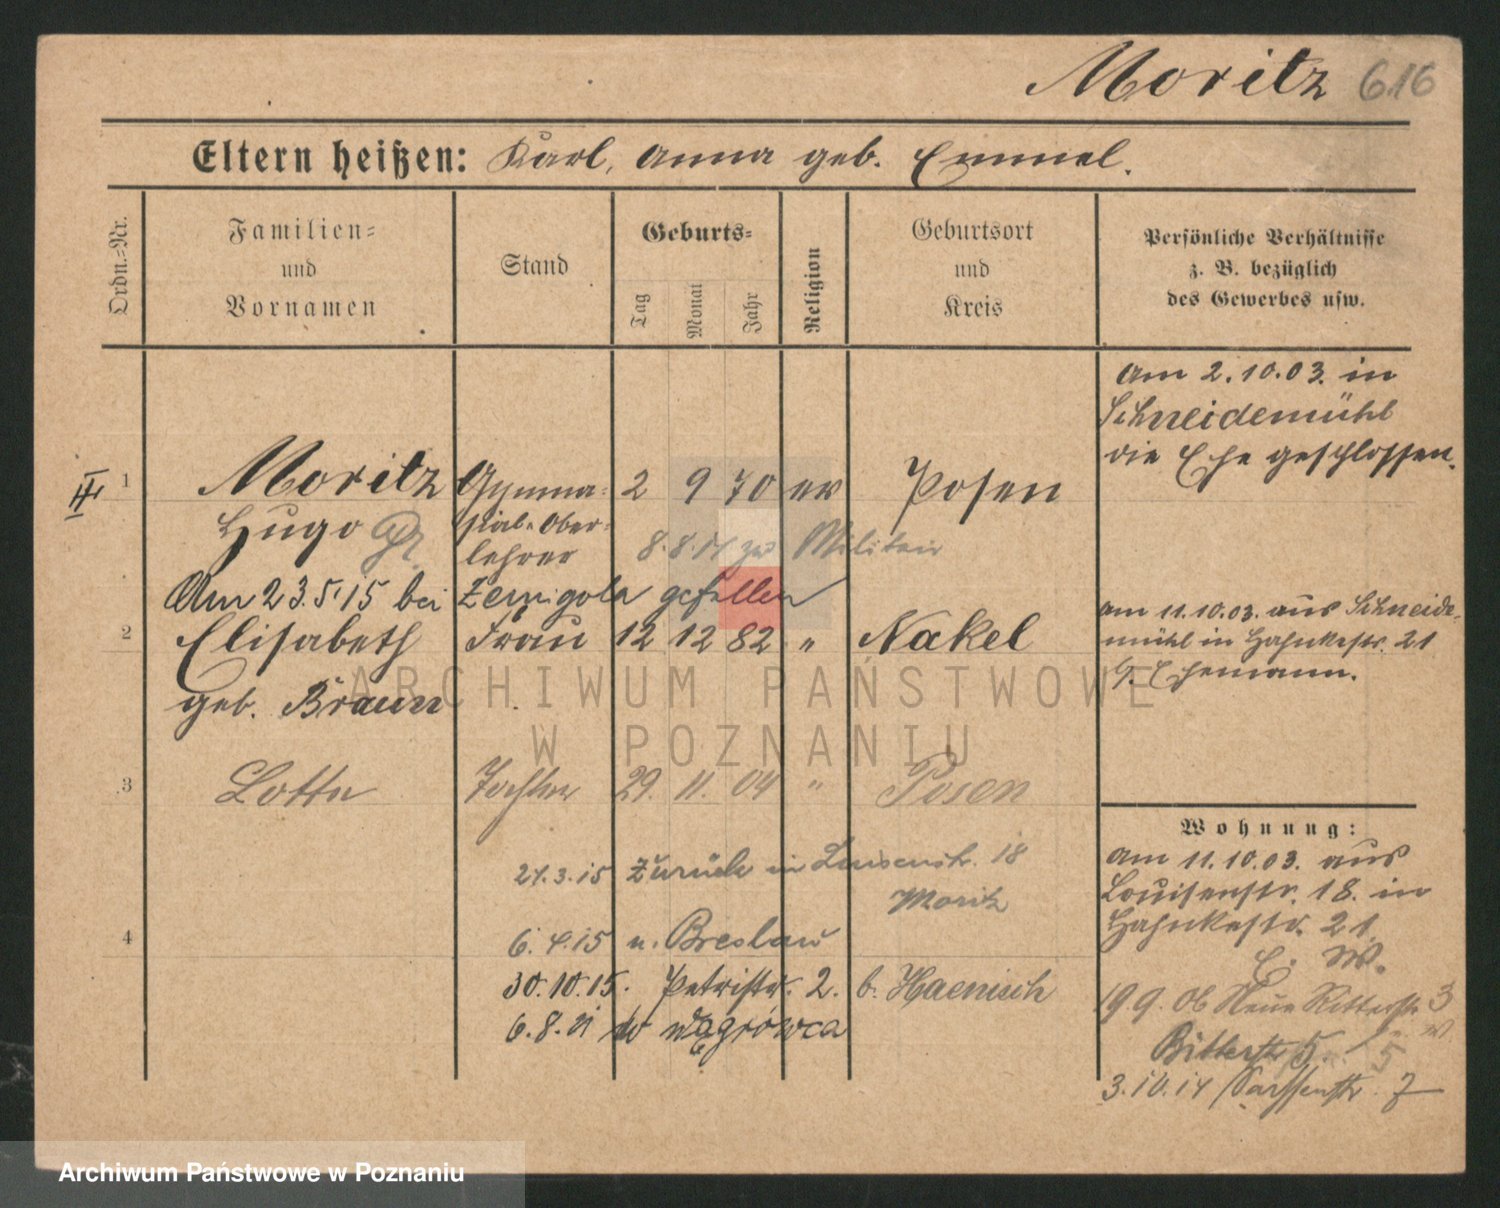 Moritz 616
Eltern heißen: Karl, Anna geb. Emmel.
Ordn.-Nr.
Familien-
und
Vornamen
Stand
Geburts-
Tag
Monat
Jahr
Religion
Geburtsort
und
Kreis
Persönliche Verhältnisse
z. B. bezüglich
des Gewerbes usw.
am 2.10.03. in
Schneidemühl
die Ehe geschlossen.
III 1 Moritz Gymna- 2 9 70 ev Posen
Hugo Dr. sial-Ober-
lehrer 8.8.14 zum Militair
Am 23.5.15 bei gefallen
2 Elisabeth Frau 12 12 82 " Nakel
geb. Braun
am 11.10.03. aus Schneide-
mühl in Hahnkestr. 21
z. Ehemann.
3 Lotte Tochter 29. 11. 04 " Posen
27.3.15 zurück in Luisenstr. 18
Moritz
4 6.4.15 n. Breslau
30.10.15. Petristr. 2. b. Haenisch
6.8.21 w Wągrówca
Wohnung:
am 11.10.03. aus
Louisenstr. 18. in
Hahnkestr. 21.
E. W.
19.9.06 Neue Ritterstr 3
Ritterstr 5.
5
3.10.14
ARCHIWUM PAŃSTWOWE
W POZNANIU
Archiwum Państwowe w Poznaniu